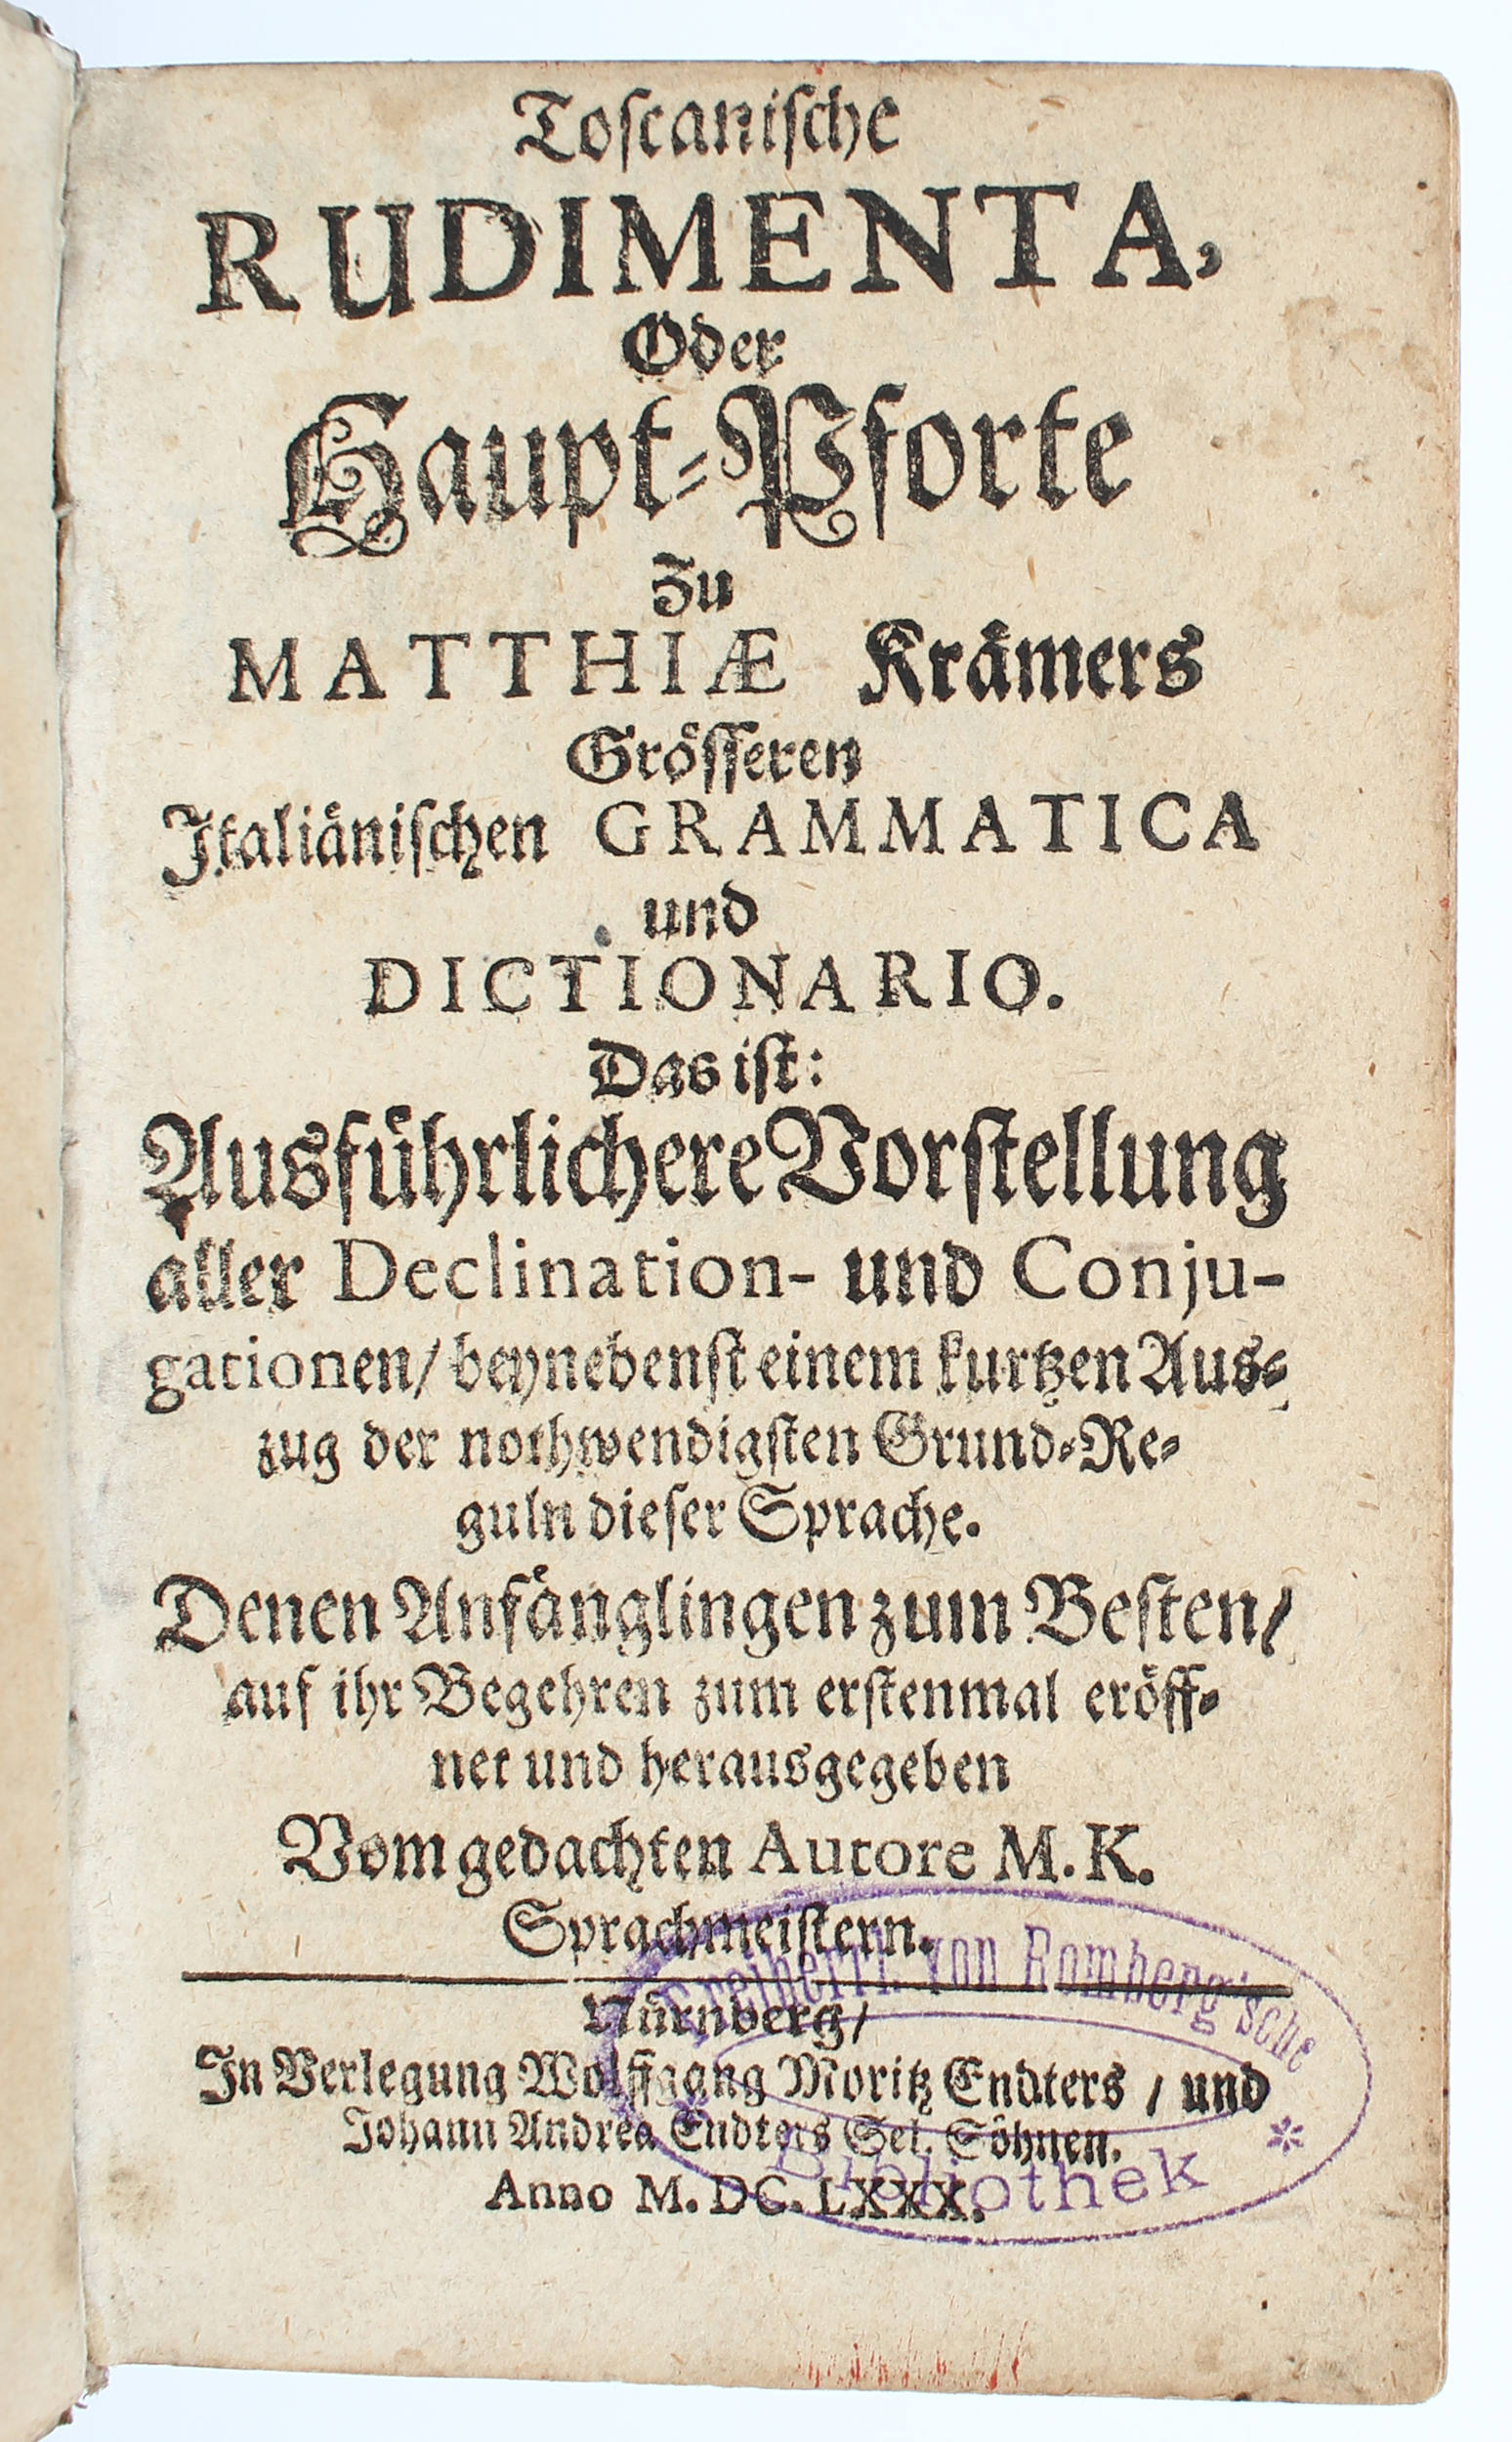 Toscanische
RUDIMENTA,
Oder
Haupt-Pforte
Zu
MATTHIÆ Krämers
Grösseren
Italiänischen GRAMMATICA
und
DICTIONARIO.
Das ist:
Ausführlichere Vorstellung
aller Declination- und Conju-
gationen/ beynebenst einem kurtzen Aus-
zug der nothwendigsten Grund-Re-
guln dieser Sprache.
Denen Anfänglingen zum Besten/
auf ihr Begehren zum erstenmal eröff-
net und herausgegeben
Vom gedachten Autore M. K.
Sprachmeistern.
Nürnberg/
In Verlegung Wolffgang Moritz Endters / und
Johann Andrea Endters Sel. Söhnen.
Anno M. DC. LXXX.
Freiherrl. von Romberg'sche
Bibliothek *